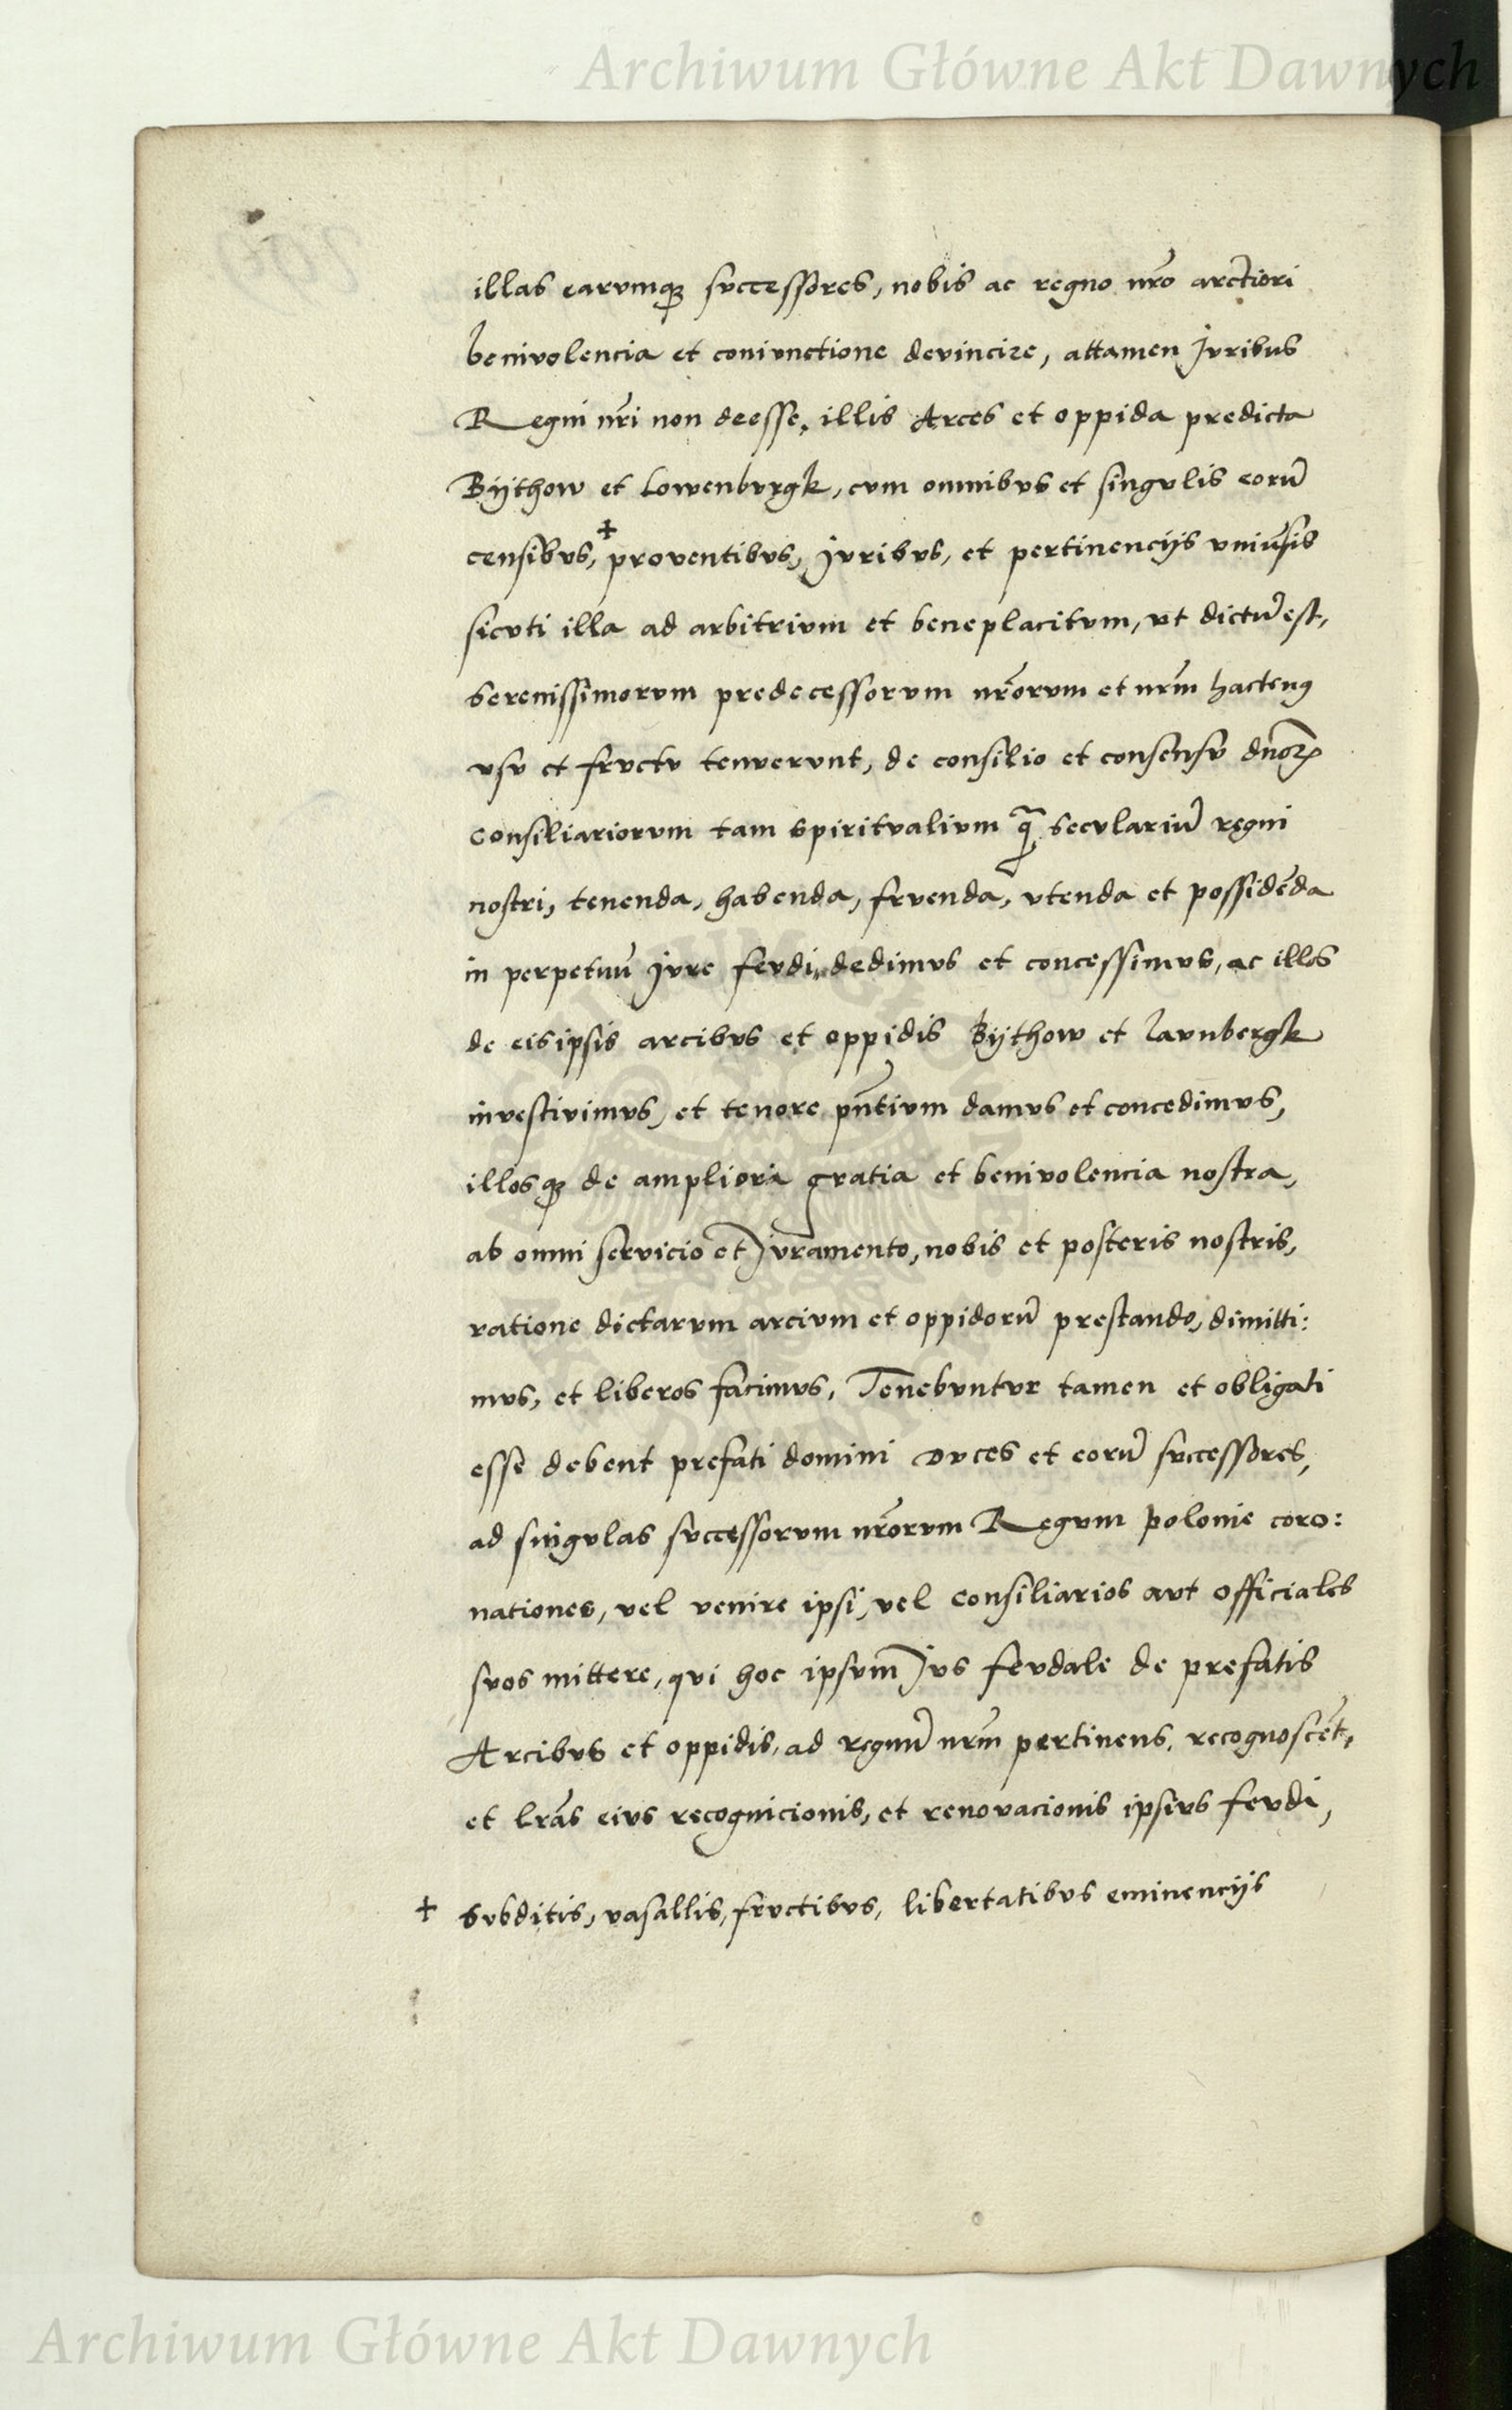 Archiwum Główne Akt Dawnych
illas earumqꝫ successores, nobis ac regno nr̃o arctiori
benivolencia et coniunctione devincire, attamen Juribus
Regni nr̃i non deesse, illis Arces et oppida predicta
Bÿthow et Lowenburgk, cum omnibus et singulis eorũ
censibus, + proventibus, Juribus, et pertinencijs uniṽsis
sicuti illa ad arbitrium et beneplacitum, ut dictũ est,
serenissimorum predecessorum nr̃orum et nr̃m hactenꝰ
usu et fructu tenuerunt, de consilio et consensu dñoꝝ
consiliariorum tam spiritualium q̃ seculariũ regni
nostri, tenenda, habenda, fruenda, utenda et possidẽda
in perpetuũ Jure feudi, dedimus et concessimus, ac illos
de eis ipsis arcibus et oppidis Bÿthow et Laumbergk
investivimus, et tenore pñtium damus et concedimus,
illosqꝫ de ampliori gratia et benivolencia nostra,
ab omni servicio et Juramento, nobis et posteris nostris,
ratione dictarum arcium et oppidorũ prestando, dimitti:
mus, et liberos facimus, Tenebuntur tamen et obligati
esse debent prefati domini Duces et eorũ successores,
ad singulas successorum nr̃orum Regum Polonie coro:
nationes, vel venire ipsi, vel Consiliarios aut Officiales
suos mittere, qui hoc ipsum Jus feudale de prefatis
Arcibus et oppidis, ad regnũ nr̃m pertinens, recognoscẽt,
et lr̃as eius recognicionis, et renovacionis ipsius feudi,
+ subditis, vasallis, fructibus, libertatibus eminencijs
Archiwum Główne Akt Dawnych